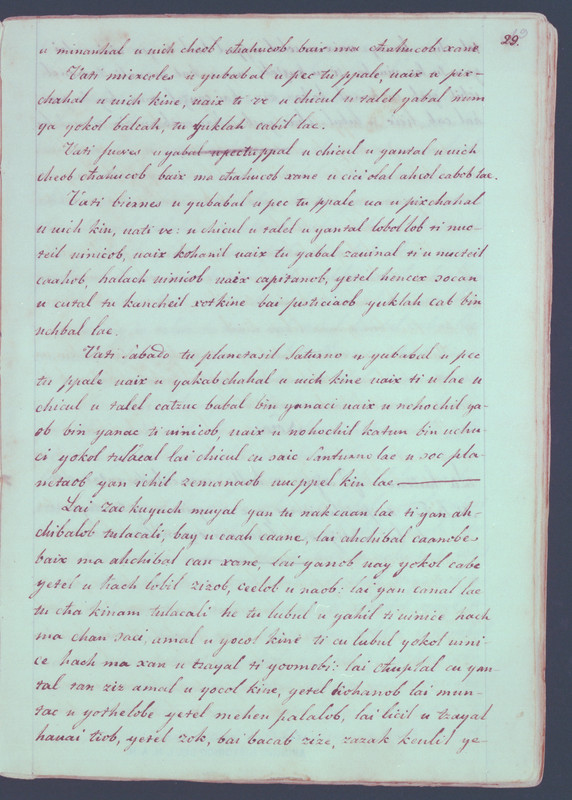 29.
u minanhal u uich cheob chahucob baix ma chahucob xane
Vati miercoles u yubabal u pec tu ppale, uaix u pix-
chahal u uich kine, uaix ti ve u chicul u talel yabal num
ya yokol balcah, tu yuklah cabil lae.
Vati jueves u yabal u pec tu ppal u chicul u yantal u uich
cheob chahucob baix ma chahucob xane u cici olal ahvol cabob lae.
Vati biernes u yubabal u pec tu ppale ua u pixchahal
u uich kin, uati ve: u chicul u talel u yantal lobol lob ti nuc-
teil uinicob, uaix kohanil uaix tu yabal zauinal ti u nucteil
caahob, halach uinicob uaix capitanob, yetel hencex socan
u cutal tu kancheil xotkine bai justiciaob yuklah cab bin
uchbal lae.
Vati Sabado tu planetasil Saturno u yubabal u pec
tu ppale uaix u yakabchahal u uich kine uaix ti u lae u
chicul u talel catzuc babal bin yanaci uaix u nohochil ya-
ob bin yanac ti uinicob, uaix u nohochil katun bin uchu-
ci yokol tulacal lai chicul cu saic Santurno lae u soc pla-
netaob yan ichil zemanaob uueppel kin lae
Lai zac kuyuch muyal yan tu nakcaan lae ti yan ah-
chibalob tulacali, bay u caah caane, lai ahchibal caanobe
baix ma ahchibal can xane, lai yanob nay yokol cabe
yetel u hach lobil zizob, ceelob u naob: lai yan canal lae
tu cha kinam tulacali he tu lubul u yahil ti uinice hach
ma chan saci, amal u yocol kine ti cu lubul yokol uini-
ce hach ma xan u tzayal ti yoomobi: lai chuplal cu yan-
tal tan ziz amal u yocol kine, yetel tiohanob lai mun-
tac u yothelobe yetel mehen palalob, lai licil u tzayal
hauai tiob, yetel zok, bai bacab zize, zazak kenlil ye-